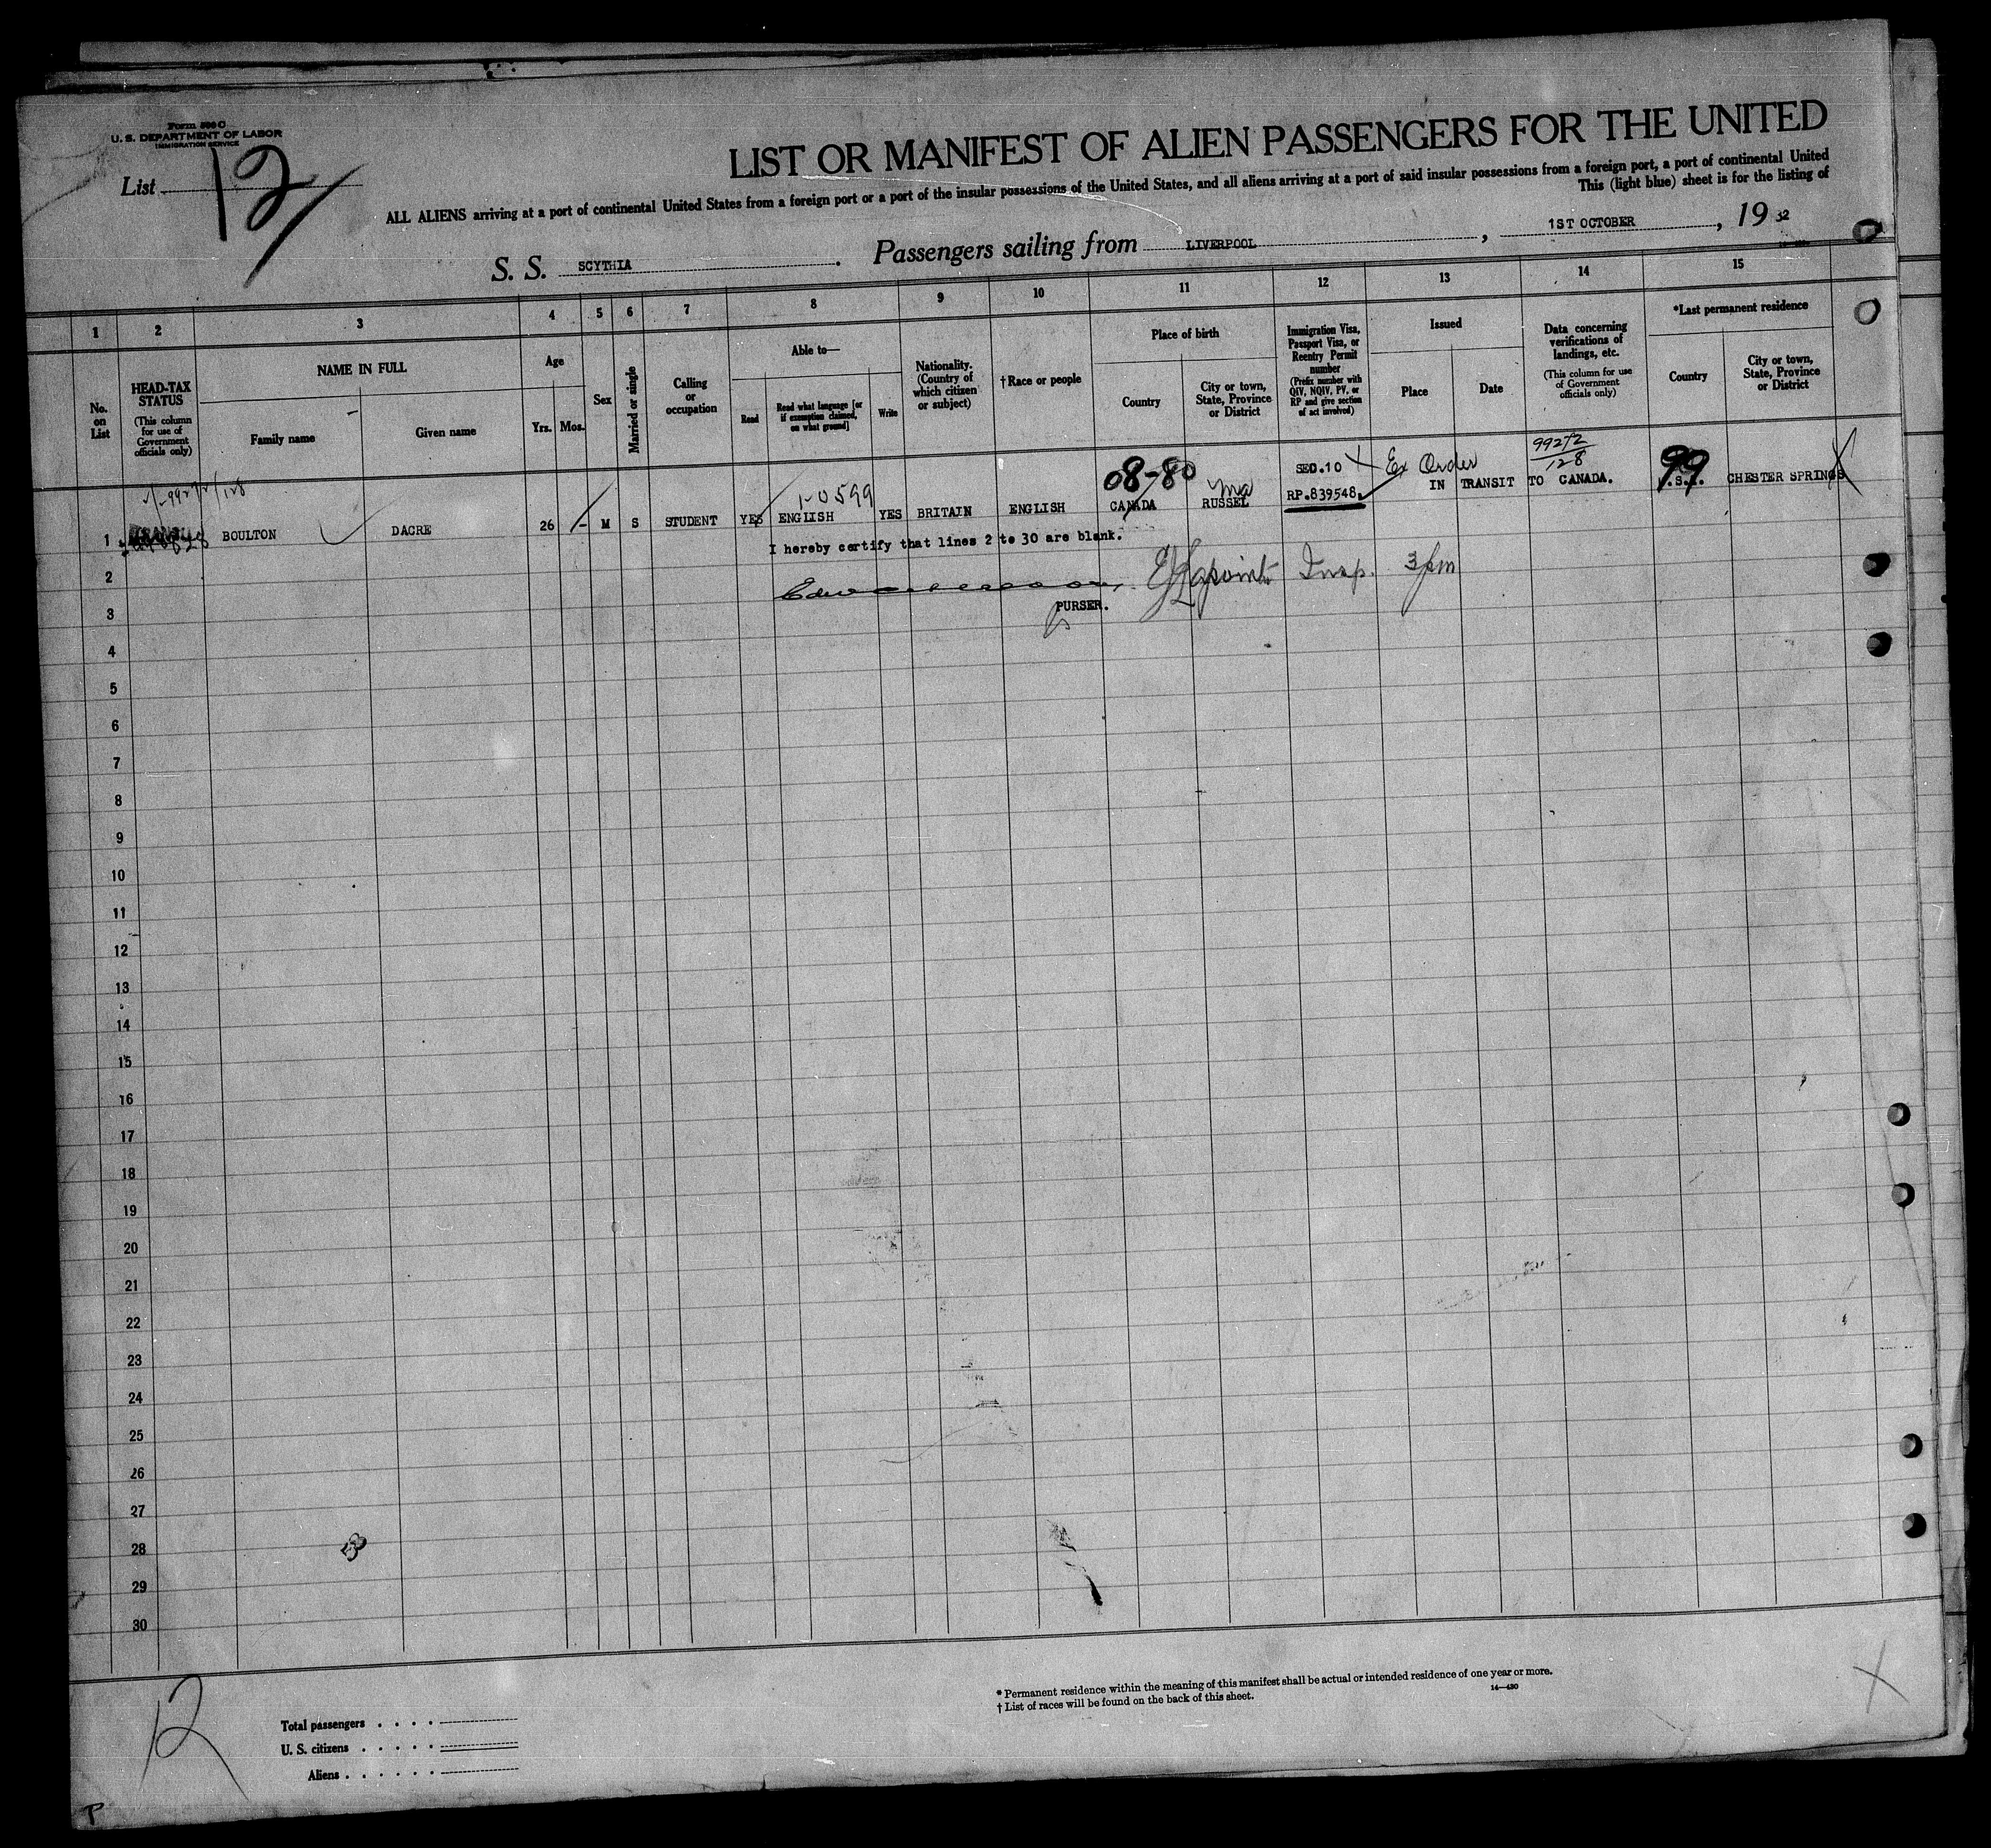 Form 500 C
U. S. DEPARTMENT OF LABOR
IMMIGRATION SERVICE
List 12
LIST OR MANIFEST OF ALIEN PASSENGERS FOR THE UNITED
ALL ALIENS arriving at a port of continental United States from a foreign port or a port of the insular possessions of the United States, and all aliens arriving at a port of said insular possessions from a foreign port, a port of continental United
This (light blue) sheet is for the listing of
S. S. SCYTHIA . Passengers sailing from LIVERPOOL , 1ST OCTOBER , 19 32
1 2 3 4 5 6 7 8 9 10 11 12 13 14 15
No. on List
HEAD-TAX STATUS
(This column for use of Government officials only)
NAME IN FULL
Family name
Given name
Age
Yrs. Mos.
Sex
Married or single
Calling or occupation
Able to—
Read
Read what language [or if exemption claimed, on what ground]
Write
Nationality. (Country of which citizen or subject)
†Race or people
Place of birth
Country
City or town, State, Province or District
Immigration Visa, Passport Visa, or Reentry Permit number
(Prefix number with QIV, NQIV, PV, or RP and give section of act involved)
Issued
Place
Date
Data concerning verifications of landings, etc.
(This column for use of Government officials only)
*Last permanent residence
Country
City or town, State, Province or District
1-0599
08-80
Ma
SEC.10
Ex Order
99272
128
99
1 BOULTON DACRE 26 - M S STUDENT YES ENGLISH YES BRITAIN ENGLISH CANADA RUSSEL RP.839548 IN TRANSIT TO CANADA. U.S.A. CHESTER SPRINGS
I hereby certify that lines 2 to 30 are blank.
Insp. 3 pm
PURSER.
2
3
4
5
6
7
8
9
10
11
12
13
14
15
16
17
18
19
20
21
22
23
24
25
26
27
28
29
30
12
Total passengers . . . .
U. S. citizens . . . . .
Aliens . . . . . .
* Permanent residence within the meaning of this manifest shall be actual or intended residence of one year or more.
† List of races will be found on the back of this sheet.
14—430
P